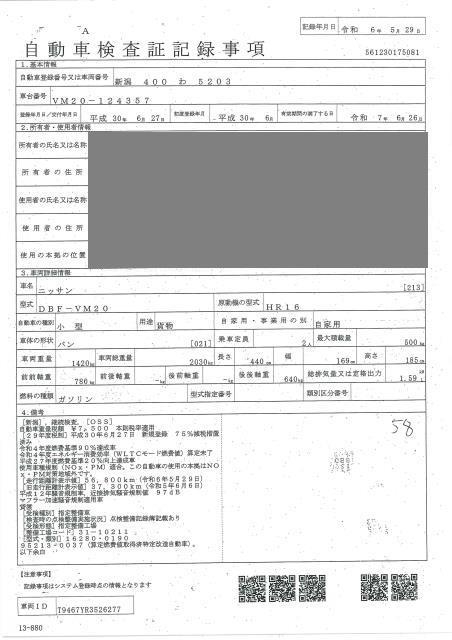 A
記録年月日 令和 6年 5月29日
自動車検査証記録事項
561230175081
1.基本情報
自動車登録番号又は車両番号 新潟 400 わ 5203
車台番号 VM20-124357
登録年月日/交付年月日 平成 30年 6月 27日 初度登録年月 平成 30年 6月 有効期間の満了する日 令和 7年 6月26日
2.所有者・使用者情報
所有者の氏名又は名称
所有者の住所
使用者の氏名又は名称
使用者の住所
使用の本拠の位置
3.車両詳細情報
車名 ニッサン [213]
型式 DBF-VM20 原動機の型式 HR16
自動車の種別 小型 用途 貨物 自家用・事業用の別 自家用
車体の形状 バン [021] 乗車定員 2人 最大積載量 500kg
車両重量 1420kg 車両総重量 2030kg 長さ 440cm 幅 169cm 高さ 185cm
前前軸重 780kg 前後軸重 -kg 後前軸重 -kg 後後軸重 640kg 総排気量又は定格出力 1.59
燃料の種類 ガソリン 型式指定番号 類別区分番号
4.備考
[新潟],継続検査,[OSS]
自動車重量税額 ¥7,500 本則税率適用
[29年度税制]平成30年6月27日 新規登録 75%減税措置
済み
令和4年度燃費基準90%達成車
令和4年度エネルギー消費効率(WLTCモード燃費値)算定未了
平成27年度燃費基準20%向上達成車
使用車種規制(NOx・PM)適合。この自動車の使用の本拠はNO
x・PM対策地域外です。
[走行距離計表示値]56,800km(令和6年5月29日)
[旧走行距離計表示値]37,300km(令和5年6月6日)
平成12年騒音規制車,近接排気騒音規制値 97dB
マフラー加速騒音規制適用車
[受検種別]指定整備車
[検査時の点検整備実施状況]点検整備記録簿記載あり
[受検形態]指定整備工場
[整備工場コード]31-10211
[型式・類別]16280-0190
95213-0037(算定燃費値取得済特定改造自動車),
以下余白
58
【注意事項】
記録事項はシステム登録時点の情報となります
車両ID T9467YR3526277
13-880